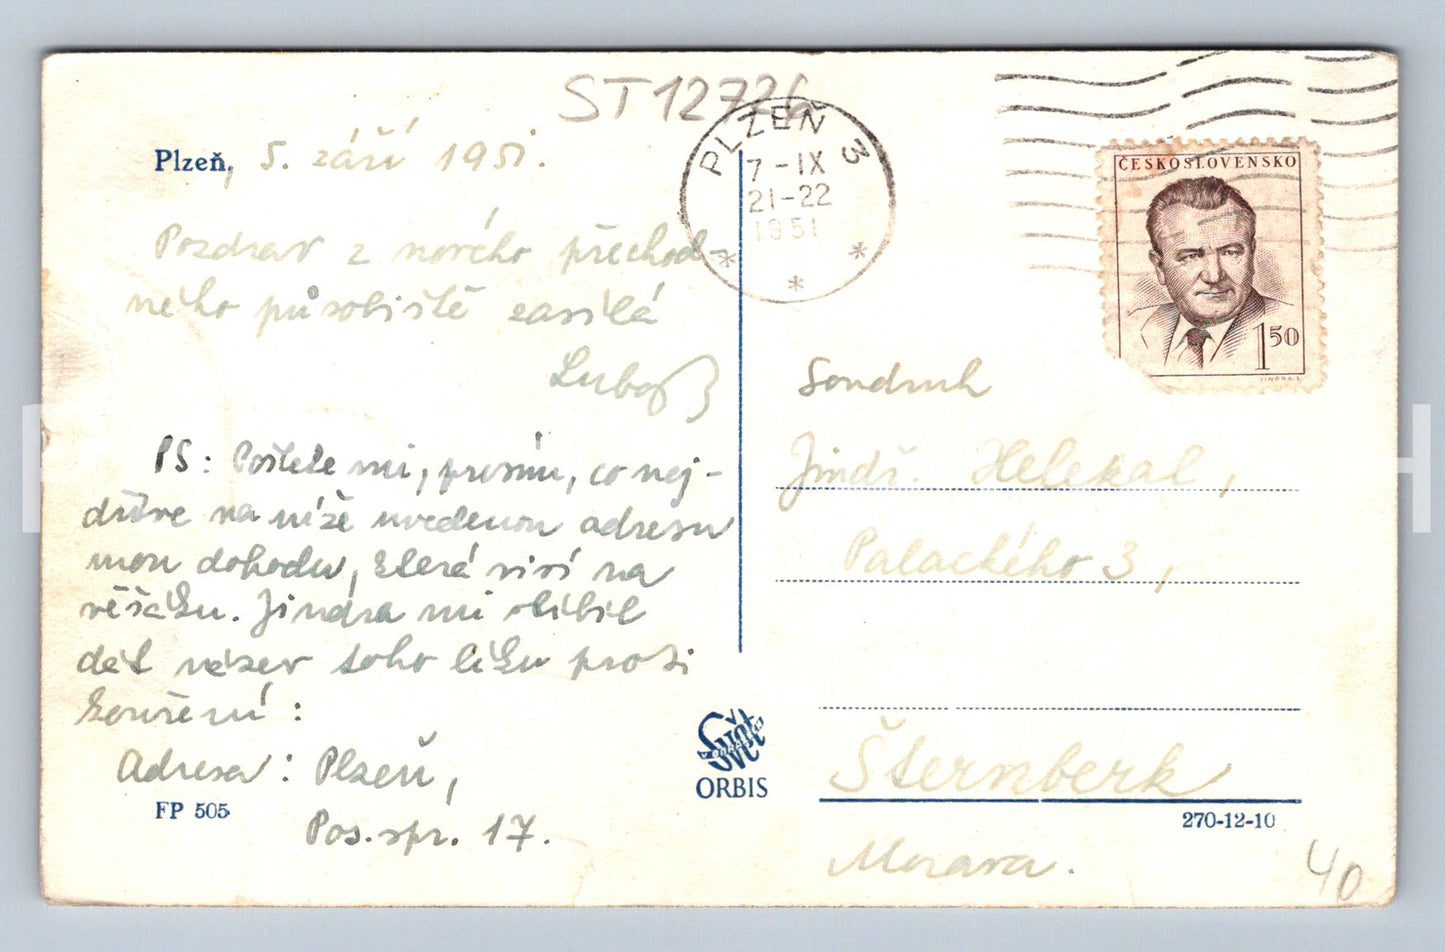 ST 12726
Plzeň, 5. září 1951.
Pozdrav z nového přechod-
ného působiště zasílá
Luboš
PS: Pošlete mi, prosím, co nej-
dříve na níže uvedenou adresu
mou dohodu, která visí na
věšáku. Jindra mi slíbil
dát název toho léku proti
kouření:
Adresa: Plzeň,
FP 505
Pos. spr. 17.
PLZEŇ 3
7-IX
21-22
1951
ČESKOSLOVENSKO
1 50
JINDRA S.
Soudruh
Jindř. Helekal,
Palackého 3,
Šternberk
Morava.
Svět
V OBRAZECH
ORBIS
270-12-10
40